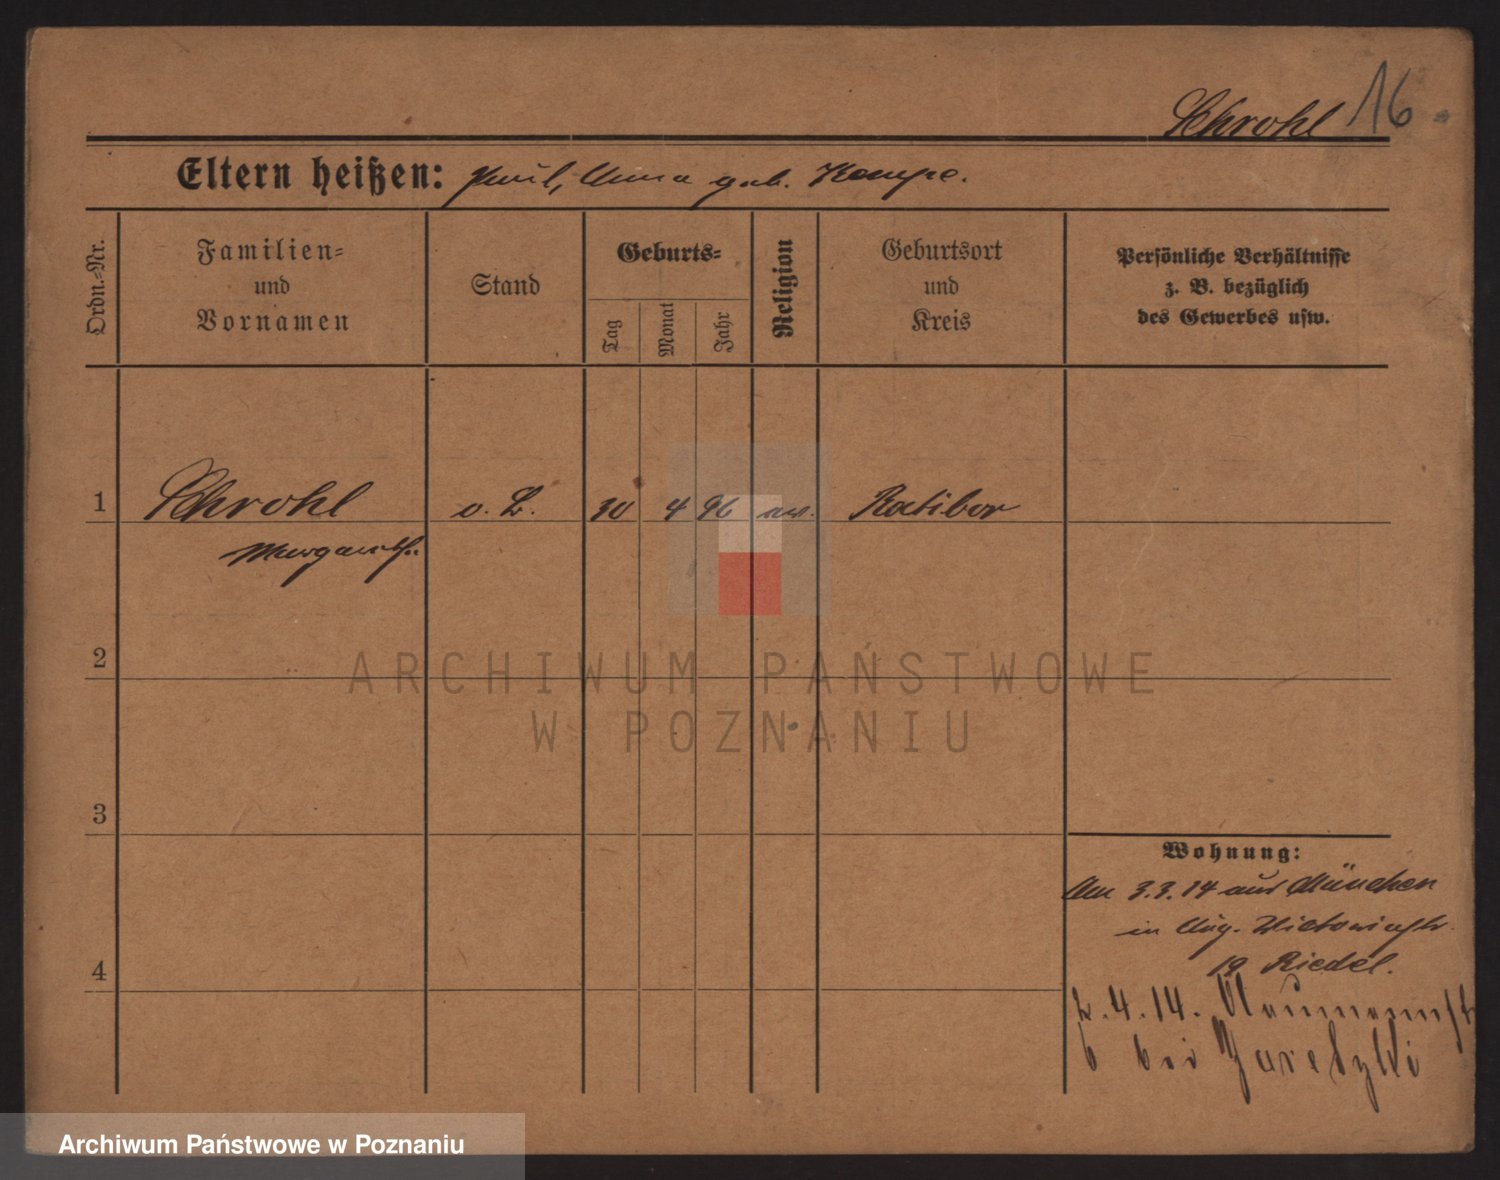 Schrohl 16.
Eltern heißen: Paul, Anna geb. Kempe.
Ordn.-Nr.
Familien=
und
Vornamen
Stand
Geburts=
Tag
Monat
Jahr
Religion
Geburtsort
und
Kreis
Persönliche Verhältnisse
z. B. bezüglich
des Gewerbes usw.
1 Schrohl o. B. 30 4 96 ev. Ratibor
Margarethe
2
3
4
Wohnung:
Am 3.3.14 aus München
in Aug. Victoriastr.
19 Riedel.
2.4.14. Naumannstr
6 bei
ARCHIWUM PAŃSTWOWE
W POZNANIU
Archiwum Państwowe w Poznaniu